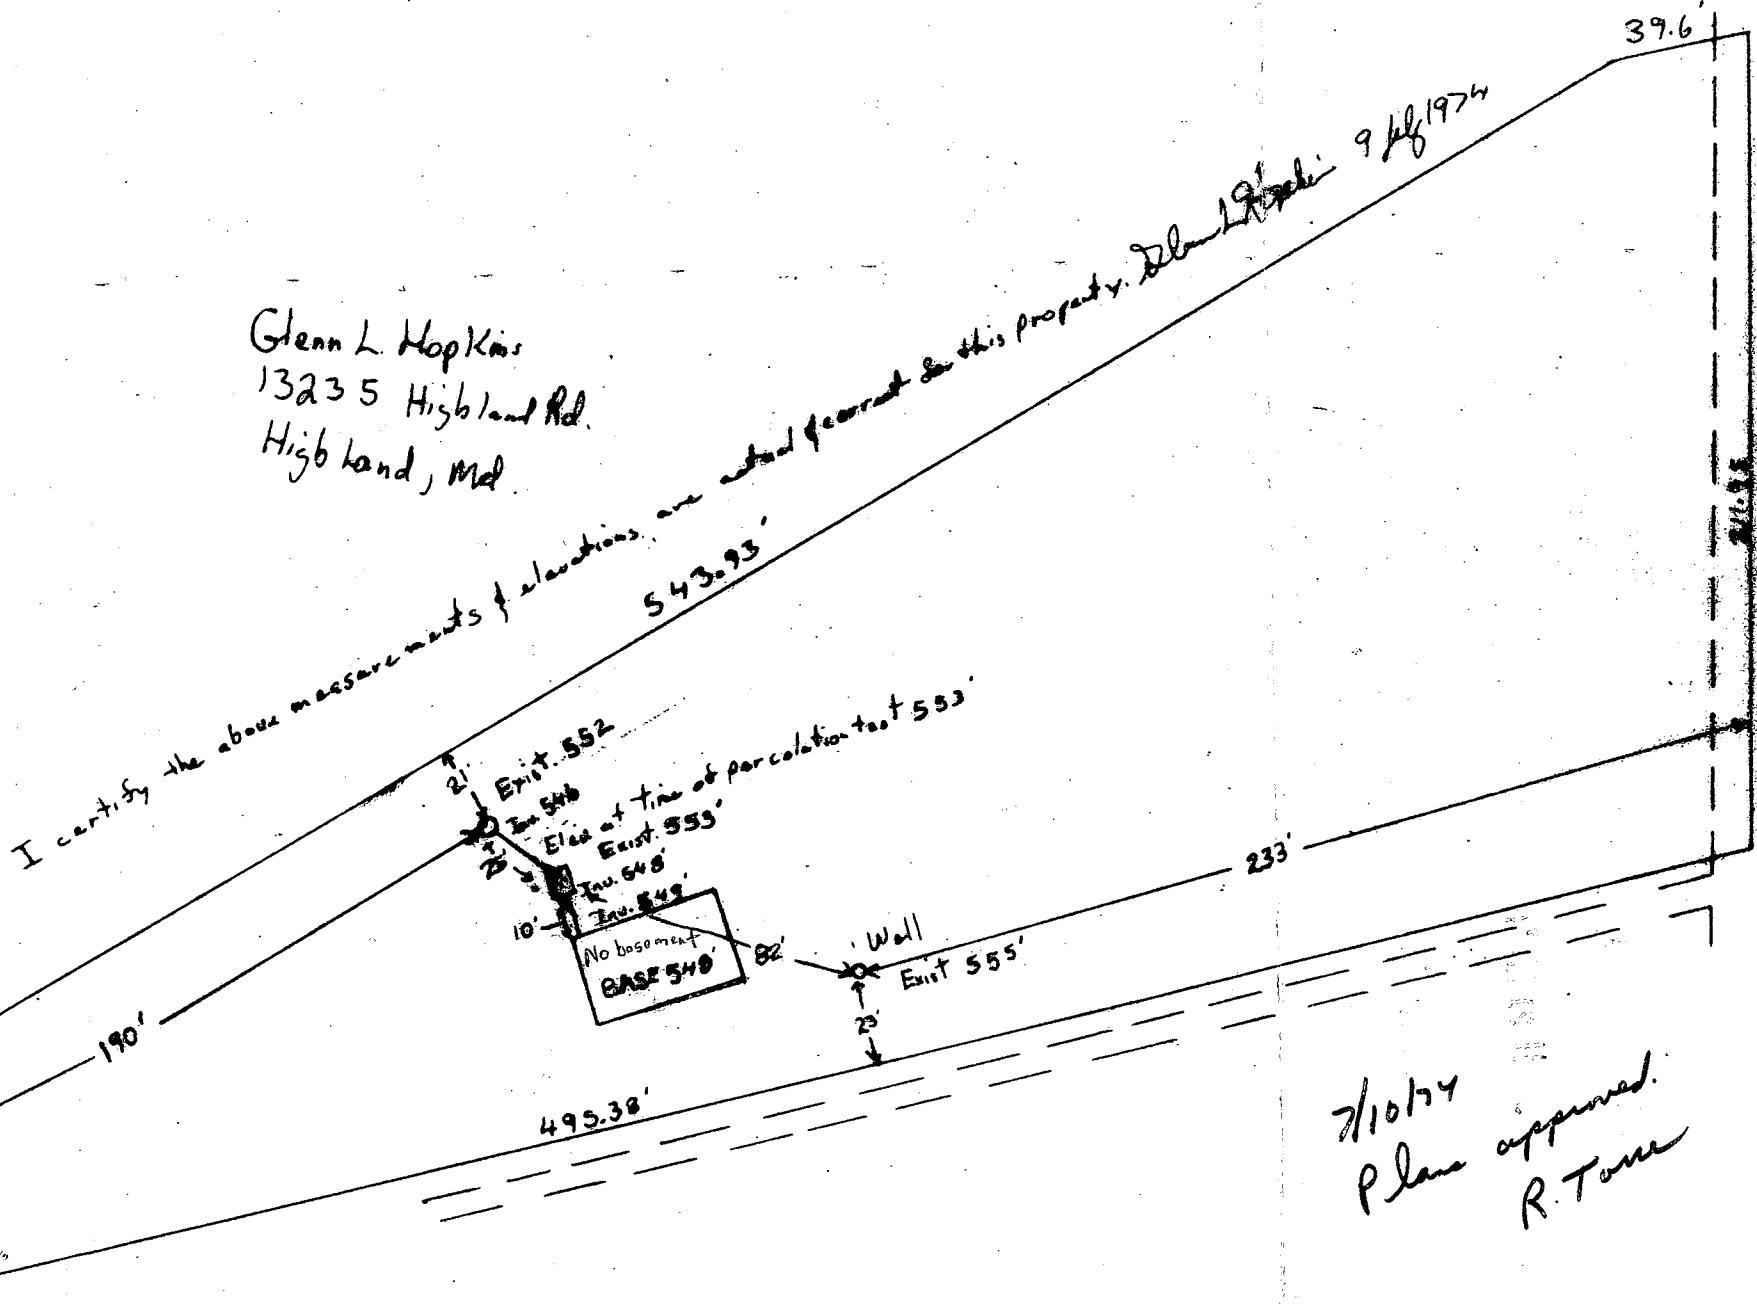 39.6'
9 July 1974
Glenn L. Hopkins
13235 Highland Rd.
Highland, Md.
I certify the above measurements & elevations are actual & correct for this property. Glenn L. Hopkins
543.93'
Exist. 552
21'
Inv. 546
Elev at time of percolation test 553'
Exist. 553'
25'
Inv. 548'
Inv. 549'
10'
No basement
BASE 549'
82'
Well
Exist 555'
233'
23'
190'
495.38'
7/10/74
Plans approved.